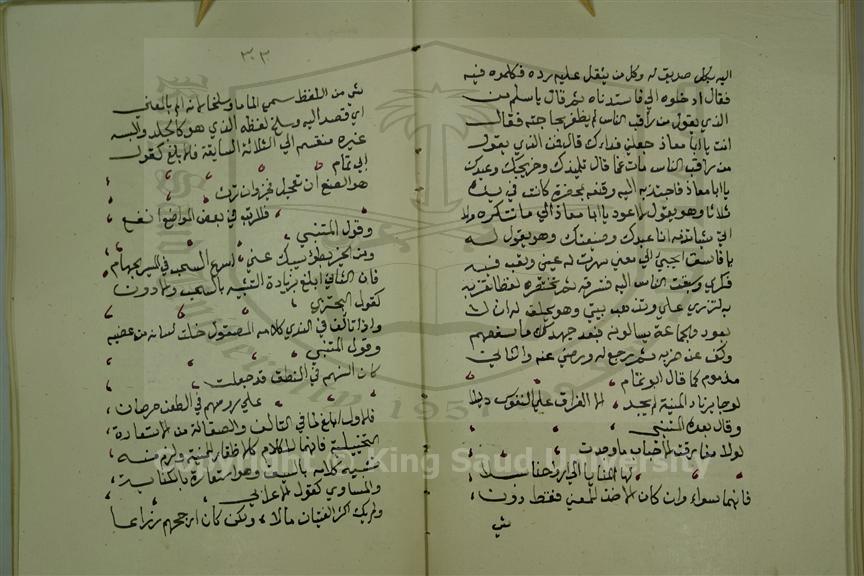 اليه بكل صديق له وكل من يثقل عليه رده فكلموه فيه
فقال ادخلوه الي فاستدناه ثم قال يا سلم من
الذي يقول من راقب الناس لم يظفر بحاجته فقال
انت يا ابا معاذ جعلني فداك قال فمن الذي يقول
من راقب الناس مات غما قال تلميذك وخريجك وعبدك
يا ابا معاذ فاجتذبه اليه وقنعه بمخصرة كانت في يده
ثلاثا وهو يقول لا اعود يا ابا معاذ الي ما تنكره ولا
اتي شيئا تذمه انا عبدك وصنيعتك وهو يقول له
يا فاسق اتجيئ الي معنى سهرت له عيني وتعب فيه
فكري وسبقت الناس اليه فتسرقه ثم تختصره لفظا تقربه
به لتزري علي وتذهب بيتي وهو يحلف له ان لا
يعود والجماعة يسالونه فبعد جهد ما شفعهم
وكف عن ضربه ثم رجع له ورضي عنه والثاني
مذموم كما قال ابو تمام
لو حار مرتاد المنية لم يجد الا الفراق على النفوس دليلا
وقال بعده المتنبي
لولا مفارقة الاحباب ما وجدت
لها المنايا الى ارواحنا سبلا
فانهما سواء وان كان الاخذ للمعنى فقط دون
شي
٣٠٣
شي من اللفظ سمي الماما وسلخا لانه الم بالمعنى
اي قصد اليه وسلخ لفظه الذي هو كالجلد والبسه
غيره منقسم الي الثلاثة السابقة فالابلغ كقول
ابي تمام
هو الصنع ان تعجل فخير وان ترث
فللريث في بعض المواضع انفع
وقول المتنبي
ومن الخير بطؤ سيبك عني اسرع السحب في المسير الجهام
فان الثاني ابلغ بزيادة التشبيه بالسحب والادون
كقول البحتري
واذا تالق في الندي كلامه المصقول خلت لسانه من عضبه
وقول المتنبي
كان السنهم في النطق قد جعلت
على رماحهم في الطعن خرصانا
فالاول ابلغ لما في التالق والصقالة من الاستعارة
التخييلية فانهما للكلام كالاظفار للمنية ولزم منه
تشبيه كلامه بالسيف وهو استعارة بالكناية
والمساوي كقول الاعرابي
ولم يك اكثر الفتيان مالا ولكن كان ارحبهم ذراعا
Copyright © King Saud University